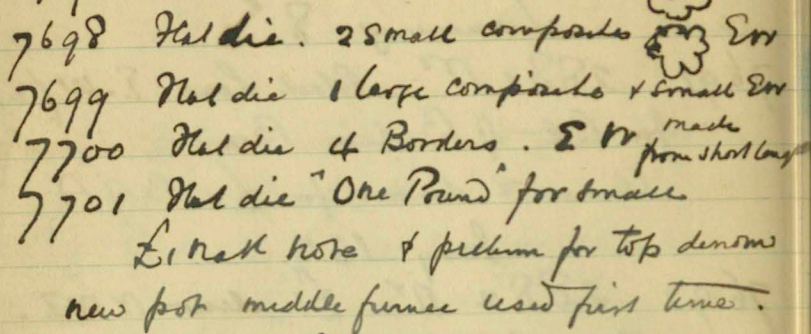 7698 Flat die. 2 small composites Ew
7699 Flat die 1 large composite & small Ew
7700 Flat die 4 Borders. E W made
from short
7701 Flat die "One Pound" for small
£1 note & for top denom
new pot middle furnace used first time.